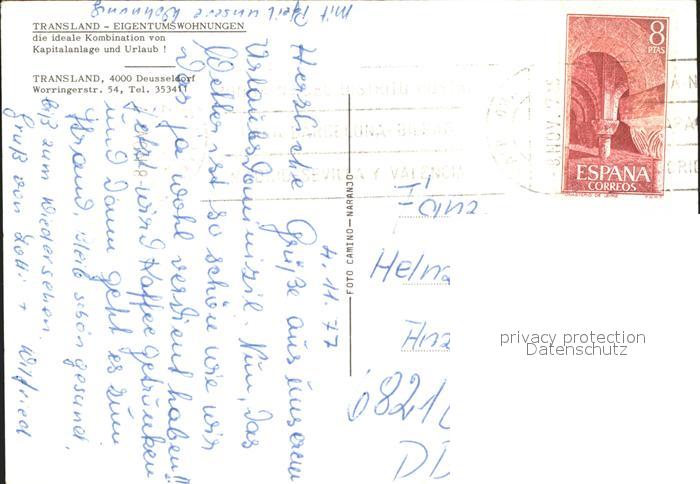 TRANSLAND – EIGENTUMSWOHNUNGEN
die ideale Kombination von
Kapitalanlage und Urlaub !
TRANSLAND, 4000 Deusseldorf
Worringerstr. 54, Tel. 353411
mit Pfeil unsere Wohnung
4. 11. 77
Herzliche Grüße aus unserem
Urlaubsdomizil. Nun, das
Wetter ist so schön wie wir
das ja wohl verdient haben!!
Jetzt wird Kaffee getrunken
und dann geht es zum
Strand, bleib schön gesund,
bis zum Wiedersehen.
Gruß von Lotti + Wilfried
FOTO CAMINO – NARANJO
8
PTAS
ESPAÑA
CORREOS
BARCELONA-BILBAO
SEVILLA Y VALENCIA
NOV. 7
Helna
0821
DD
privacy protection
Datenschutz